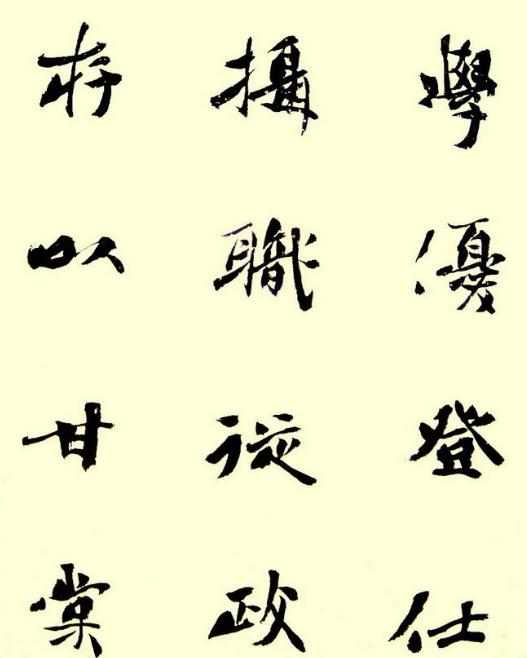 學優登仕
攝職從政
存以甘棠